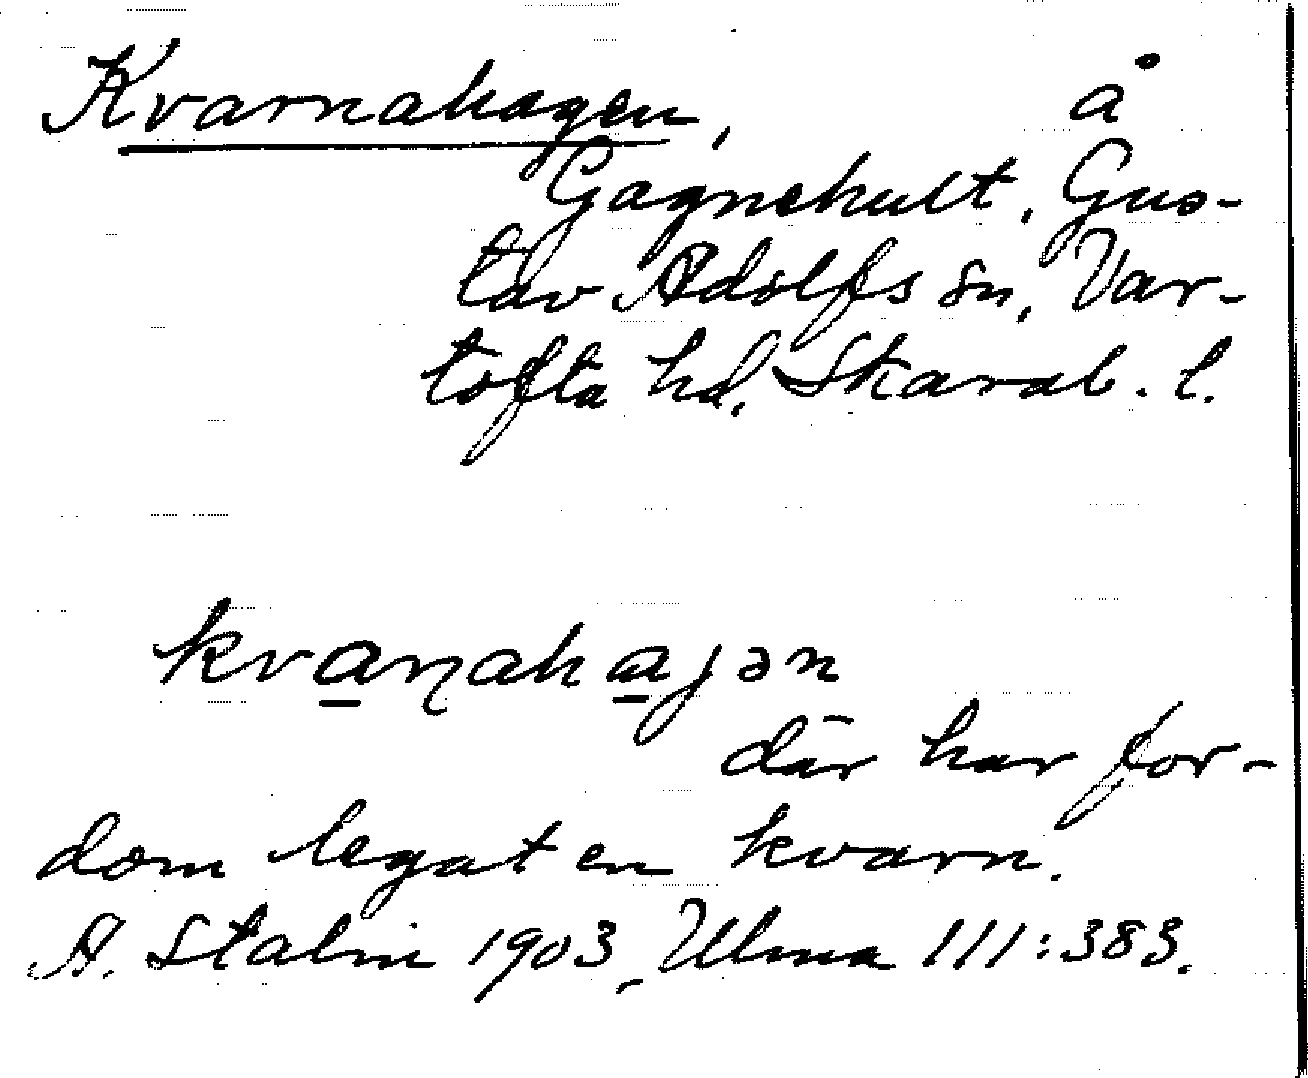 Kvarnahagen, å
Gagnehult, Gus-
tav Adolfs sn, Var-
tofta hd, Skarab. l.
kvanahajən
där har for-
dom legat en kvarn.
A. Stalin 1903, Ulma 111:383.